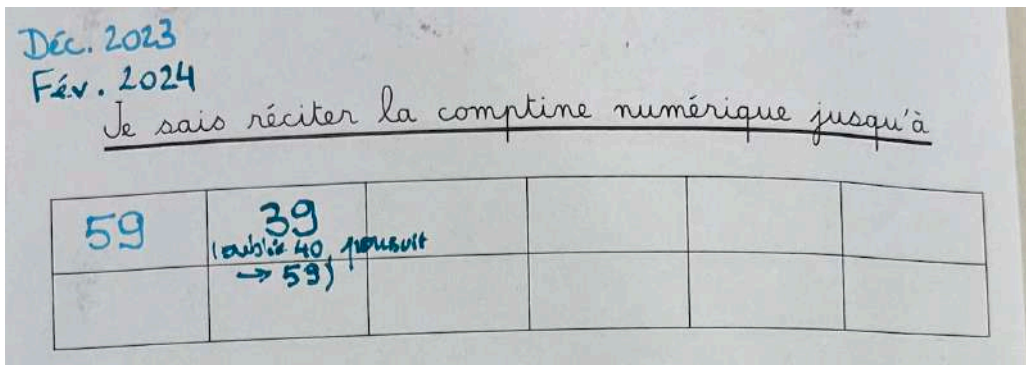 Déc. 2023
Fév. 2024
Je sais réciter la comptine numérique jusqu'à
59
39
(oublie 40, poursuit
→ 59)